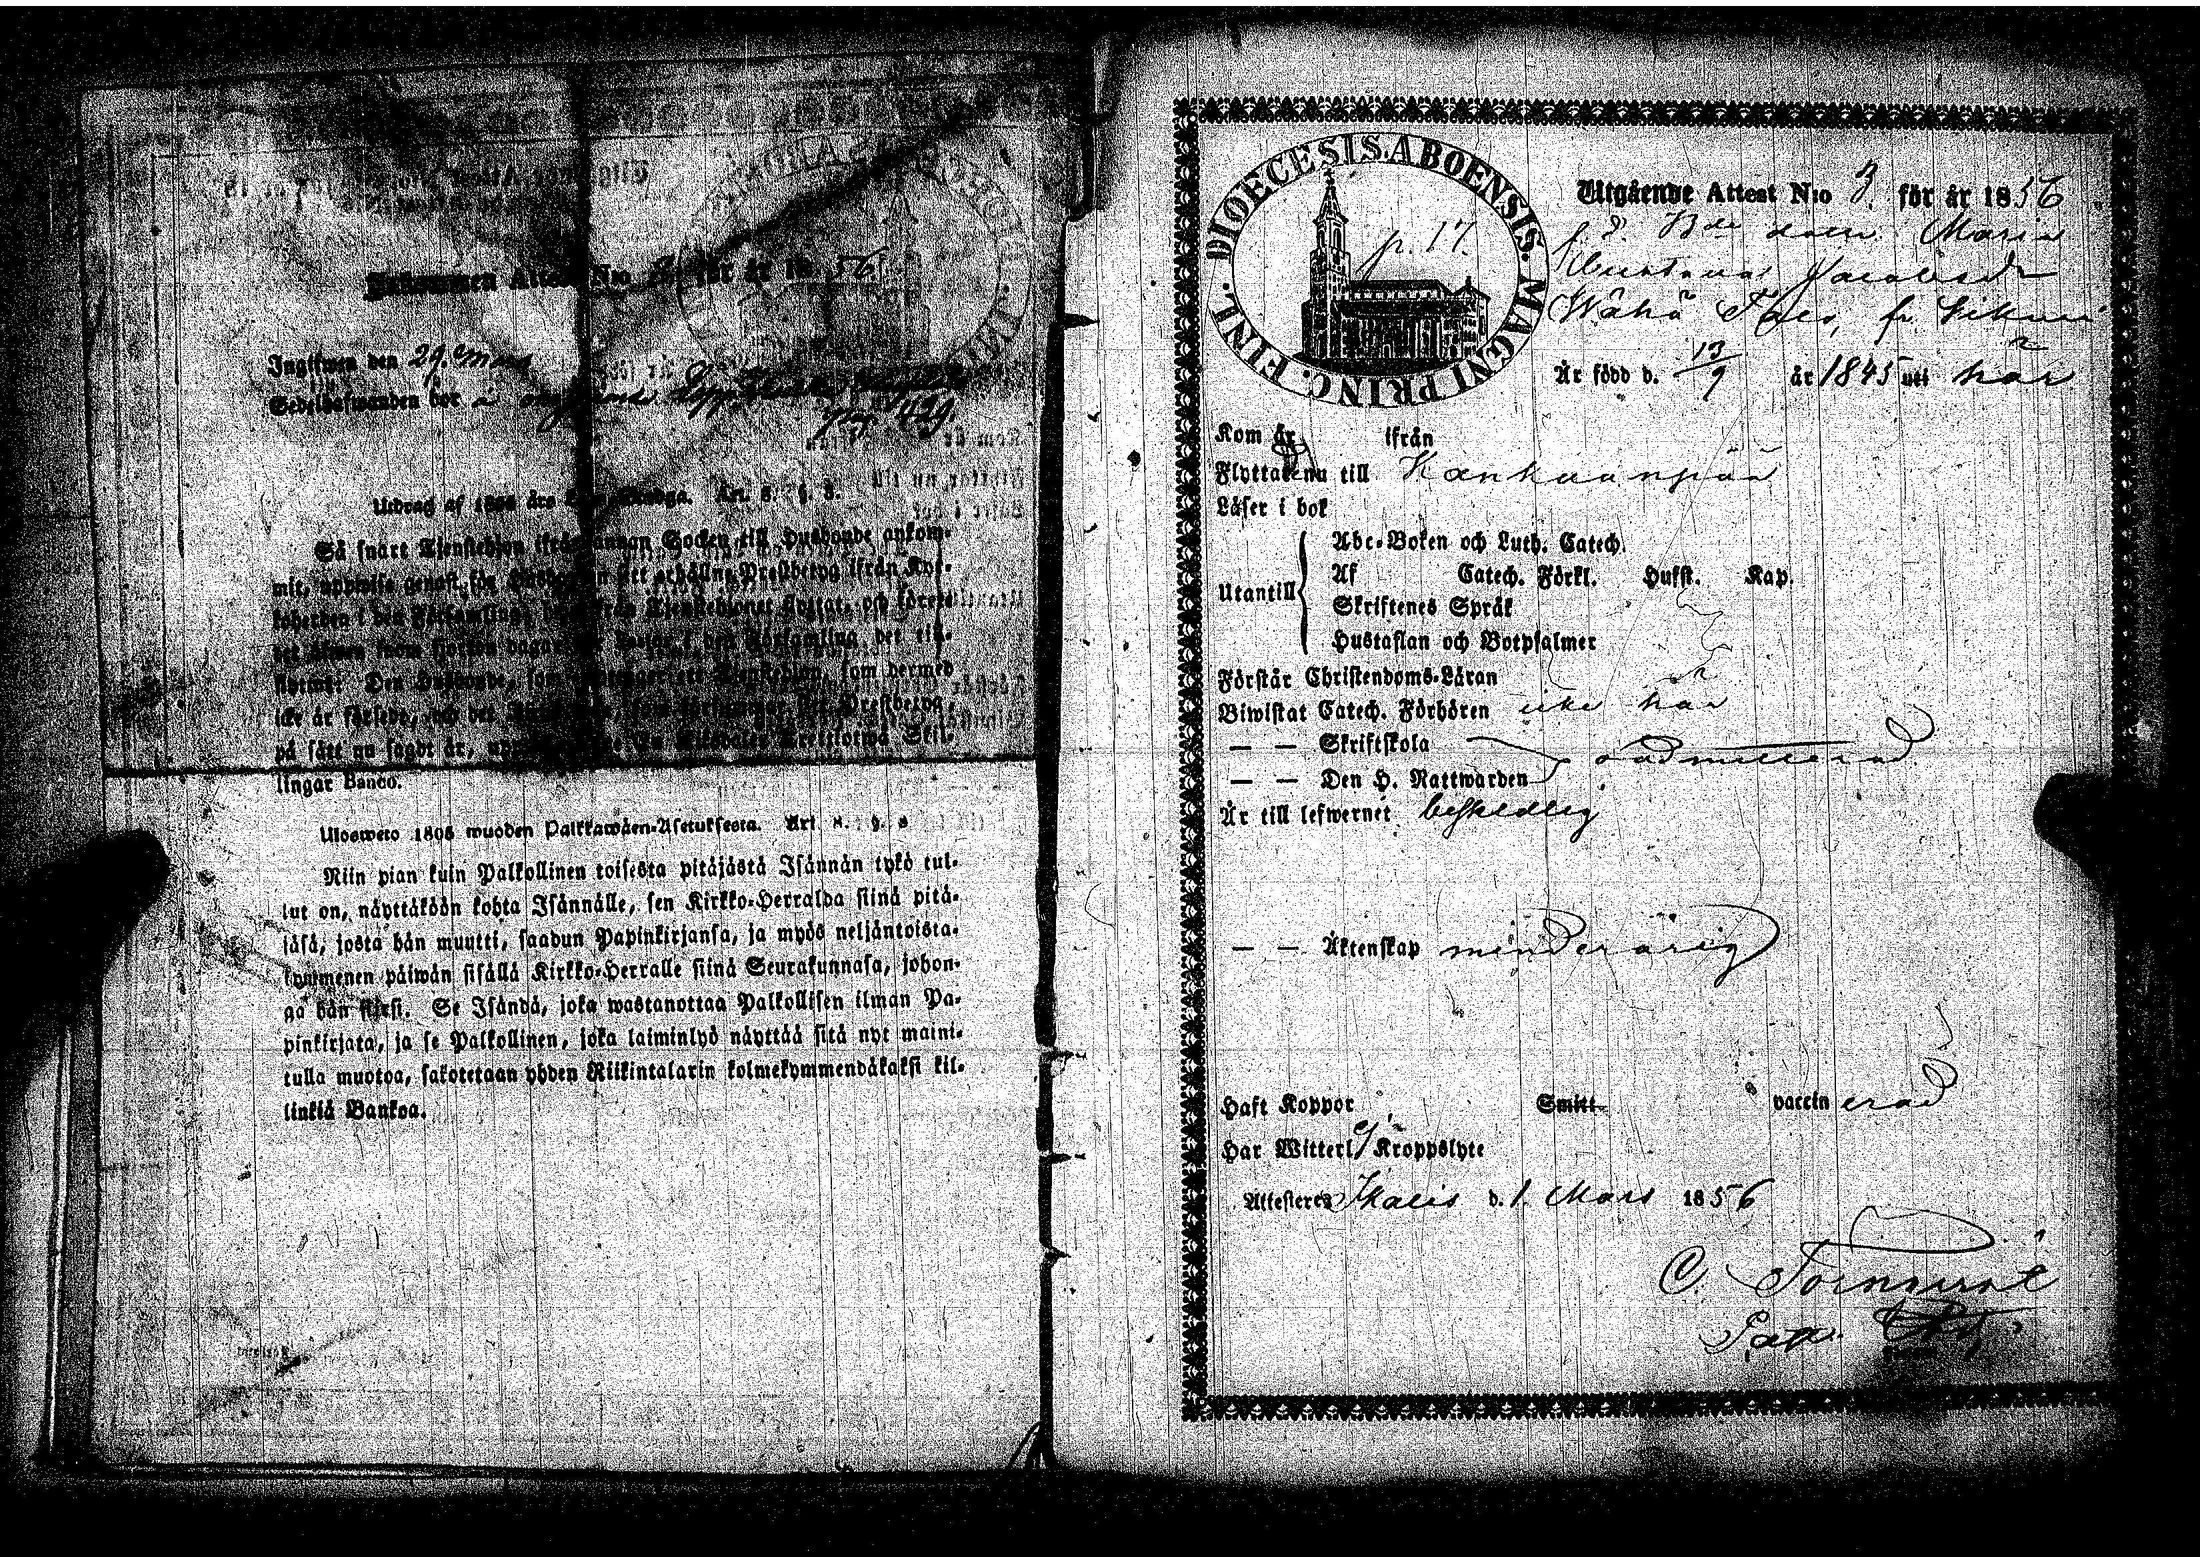 Inkommen Attest N:o för år 1856
Ingifwen den 29. Mars
Sedelhafwanden bor å
Utdrag af 1805 års Lego-Stadga. Art. 8. §. 3.
Så snart Tjenstehjon ifrån annan Socken till Husbonde ankom-
mit, uppwise genast för Husbonden sitt erhållna Prestbetyg ifrån Kyr-
koherden i den Församling, hwarifrån Tjenstehjonet flyttat, och förete
det äfwen inom fjorton dagar för Pastor i den Församling, det till-
flyttat: Den Husbonde, som antager ett Tjenstehjon, som dermed
icke är försedt, och det Tjenstehjon, som försummar sitt Prestbetyg,
på sätt nu sagdt är, uppwisa, böte En Riksdaler Trettiotwå Skil-
lingar Banco.
Ulosweto 1805 wuoden Palkkawäen-Asetuksesta. Art 8. §. 3
Niin pian kuin Palkollinen toisesta pitäjästä Isännän tykö tul-
lut on, näyttäköön kohta Isännälle, sen Kirkko-Herralda siinä pitä-
jäsä, josta hän muutti, saadun Papinkirjansa, ja myös neljäntoista-
kymmenen päiwän sisällä Kirkko-Herralle siinä Seurakunnasa, johon-
ga hän siirsi. Se Isändä, joka wastanottaa Palkollisen ilman Pa-
pinkirjata, ja se Palkollinen, joka laiminlyö näyttää sitä nyt maini-
tulla muotoa, sakotetaan yhden Riikintalarin kolmekymmendäkaksi kil-
linkiä Bankoa.
DIOECESIS. ABOENSIS. MAGNI PRINC. FINL.
p. 17.
Utgående Attest N:o 3. för år 1856
f. d. Bde dottr. Maria
Jacobsdr
Wähä
Är född d. 13/9 år 1845 uti här
Kom år ifrån
Flyttar nu till Kankaanpää
Läser i bok
Utantill
Abc-Boken och Luth. Catech.
Af Catech. Förkl. Hufst. Kap.
Skriftenes Språk
Hustaflan och Botpsalmer
Förstår Christendoms-Läran
Biwistat Catech. Förhören icke här
— — Skriftskola
oadmitterad
— — Den H. Nattwarden
Är till lefwernet beskedlig
— — Äktenskap minderårig
Haft Koppor Smitt vaccinerad
Har Witterl. Kroppslyte
Attesteras Ikalis d. 1. Mars 1856
C.